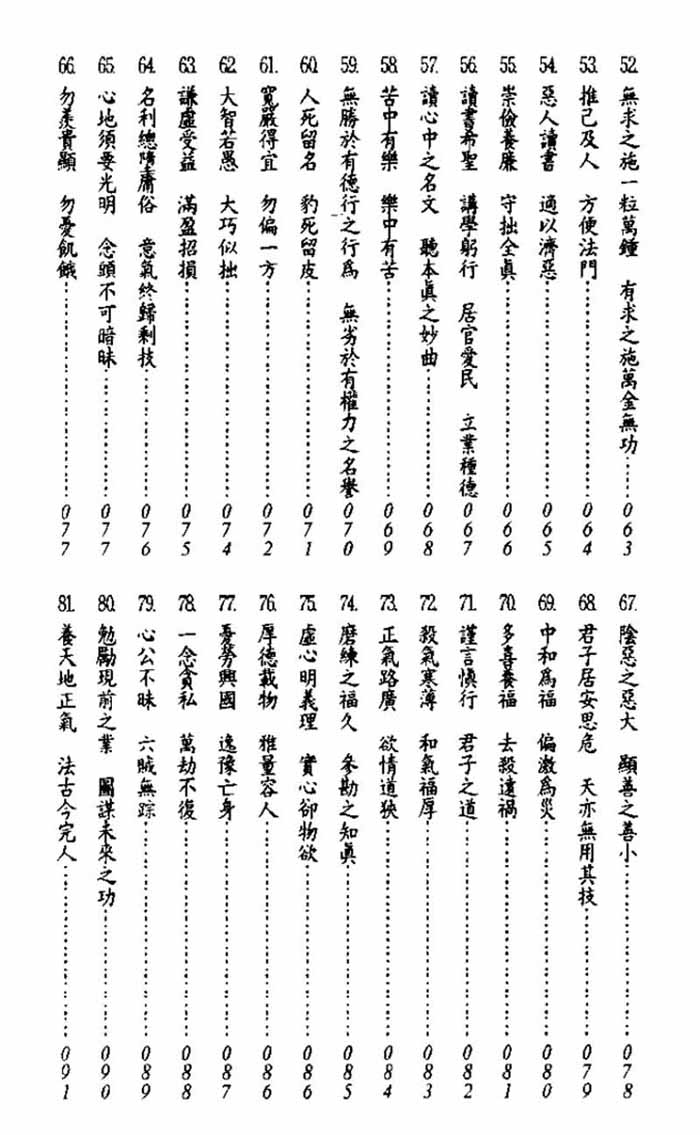 52. 無求之施一粒萬鍾　有求之施萬金無功……063
53. 推己及人　方便法門……064
54. 惡人讀書　適以濟惡……065
55. 崇儉養廉　守拙全眞……066
56. 讀書希聖　講學躬行　居官愛民　立業種德 067
57. 讀心中之名文　聽本眞之妙曲……068
58. 苦中有樂　樂中有苦……069
59. 無勝於有德行之行爲　無劣於有權力之名譽 070
60. 人死留名　豹死留皮……071
61. 寬嚴得宜　勿偏一方……072
62. 大智若愚　大巧似拙……074
63. 謙虛受益　滿盈招損……075
64. 名利總墮庸俗　意氣終歸剩技……076
65. 心地須要光明　念頭不可暗昧……077
66. 勿羨貴顯　勿憂飢餓……077
67. 陰惡之惡大　顯善之善小……078
68. 君子居安思危　天亦無用其技……079
69. 中和爲福　偏激爲災……080
70. 多喜養福　去殺遠禍……081
71. 謹言愼行　君子之道……082
72. 殺氣寒薄　和氣福厚……083
73. 正氣路廣　欲情道狹……084
74. 磨練之福久　參勘之知眞……085
75. 虛心明義理　實心卻物欲……086
76. 厚德載物　雅量容人……086
77. 憂勞興國　逸豫亡身……087
78. 一念貪私　萬劫不復……088
79. 心公不昧　六賊無踪……089
80. 勉勵現前之業　圖謀未來之功……090
81. 養天地正氣　法古今完人……091